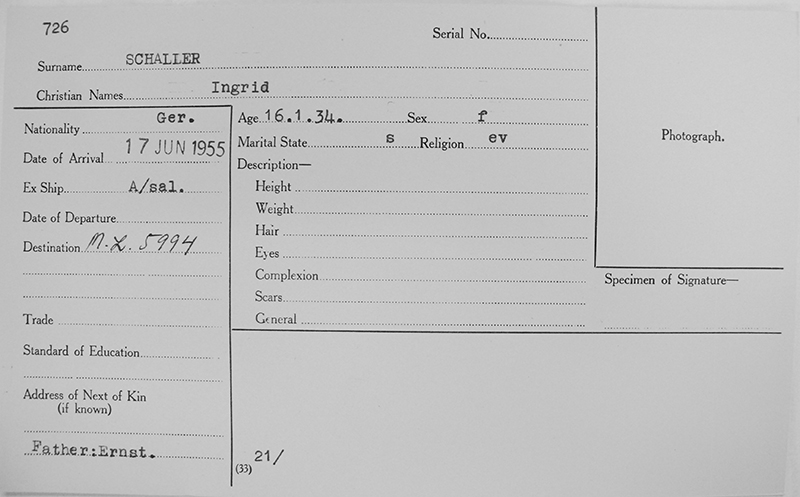 726
Serial No.
Surname SCHALLER
Christian Names Ingrid
Nationality Ger.
Date of Arrival 17 JUN 1955
Ex Ship A/sal.
Date of Departure
Destination M.L. 5994
Trade
Standard of Education
Address of Next of Kin
(if known)
Father:Ernst.
Age 16.1.34. Sex f
Marital State s Religion ev
Description—
Height
Weight
Hair
Eyes
Complexion
Scars
General
(33) 21/
Photograph.
Specimen of Signature—